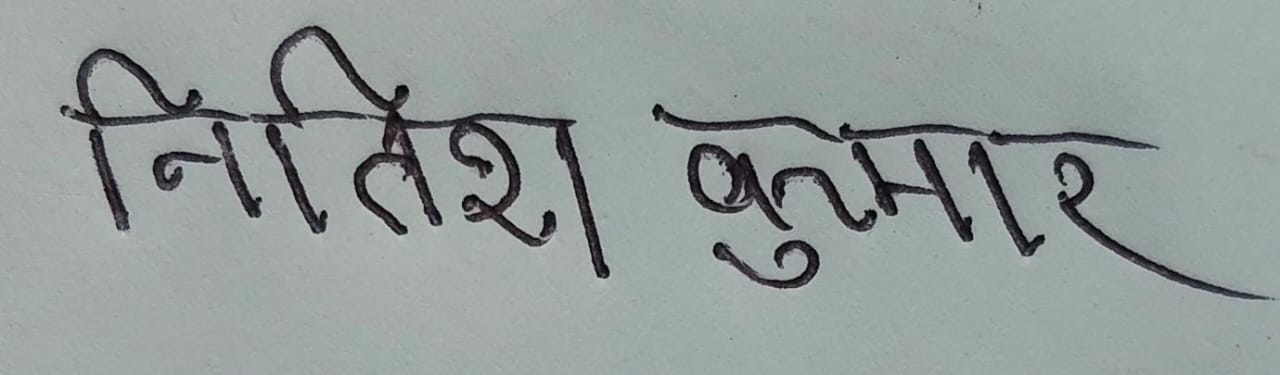 नितिश कुमार